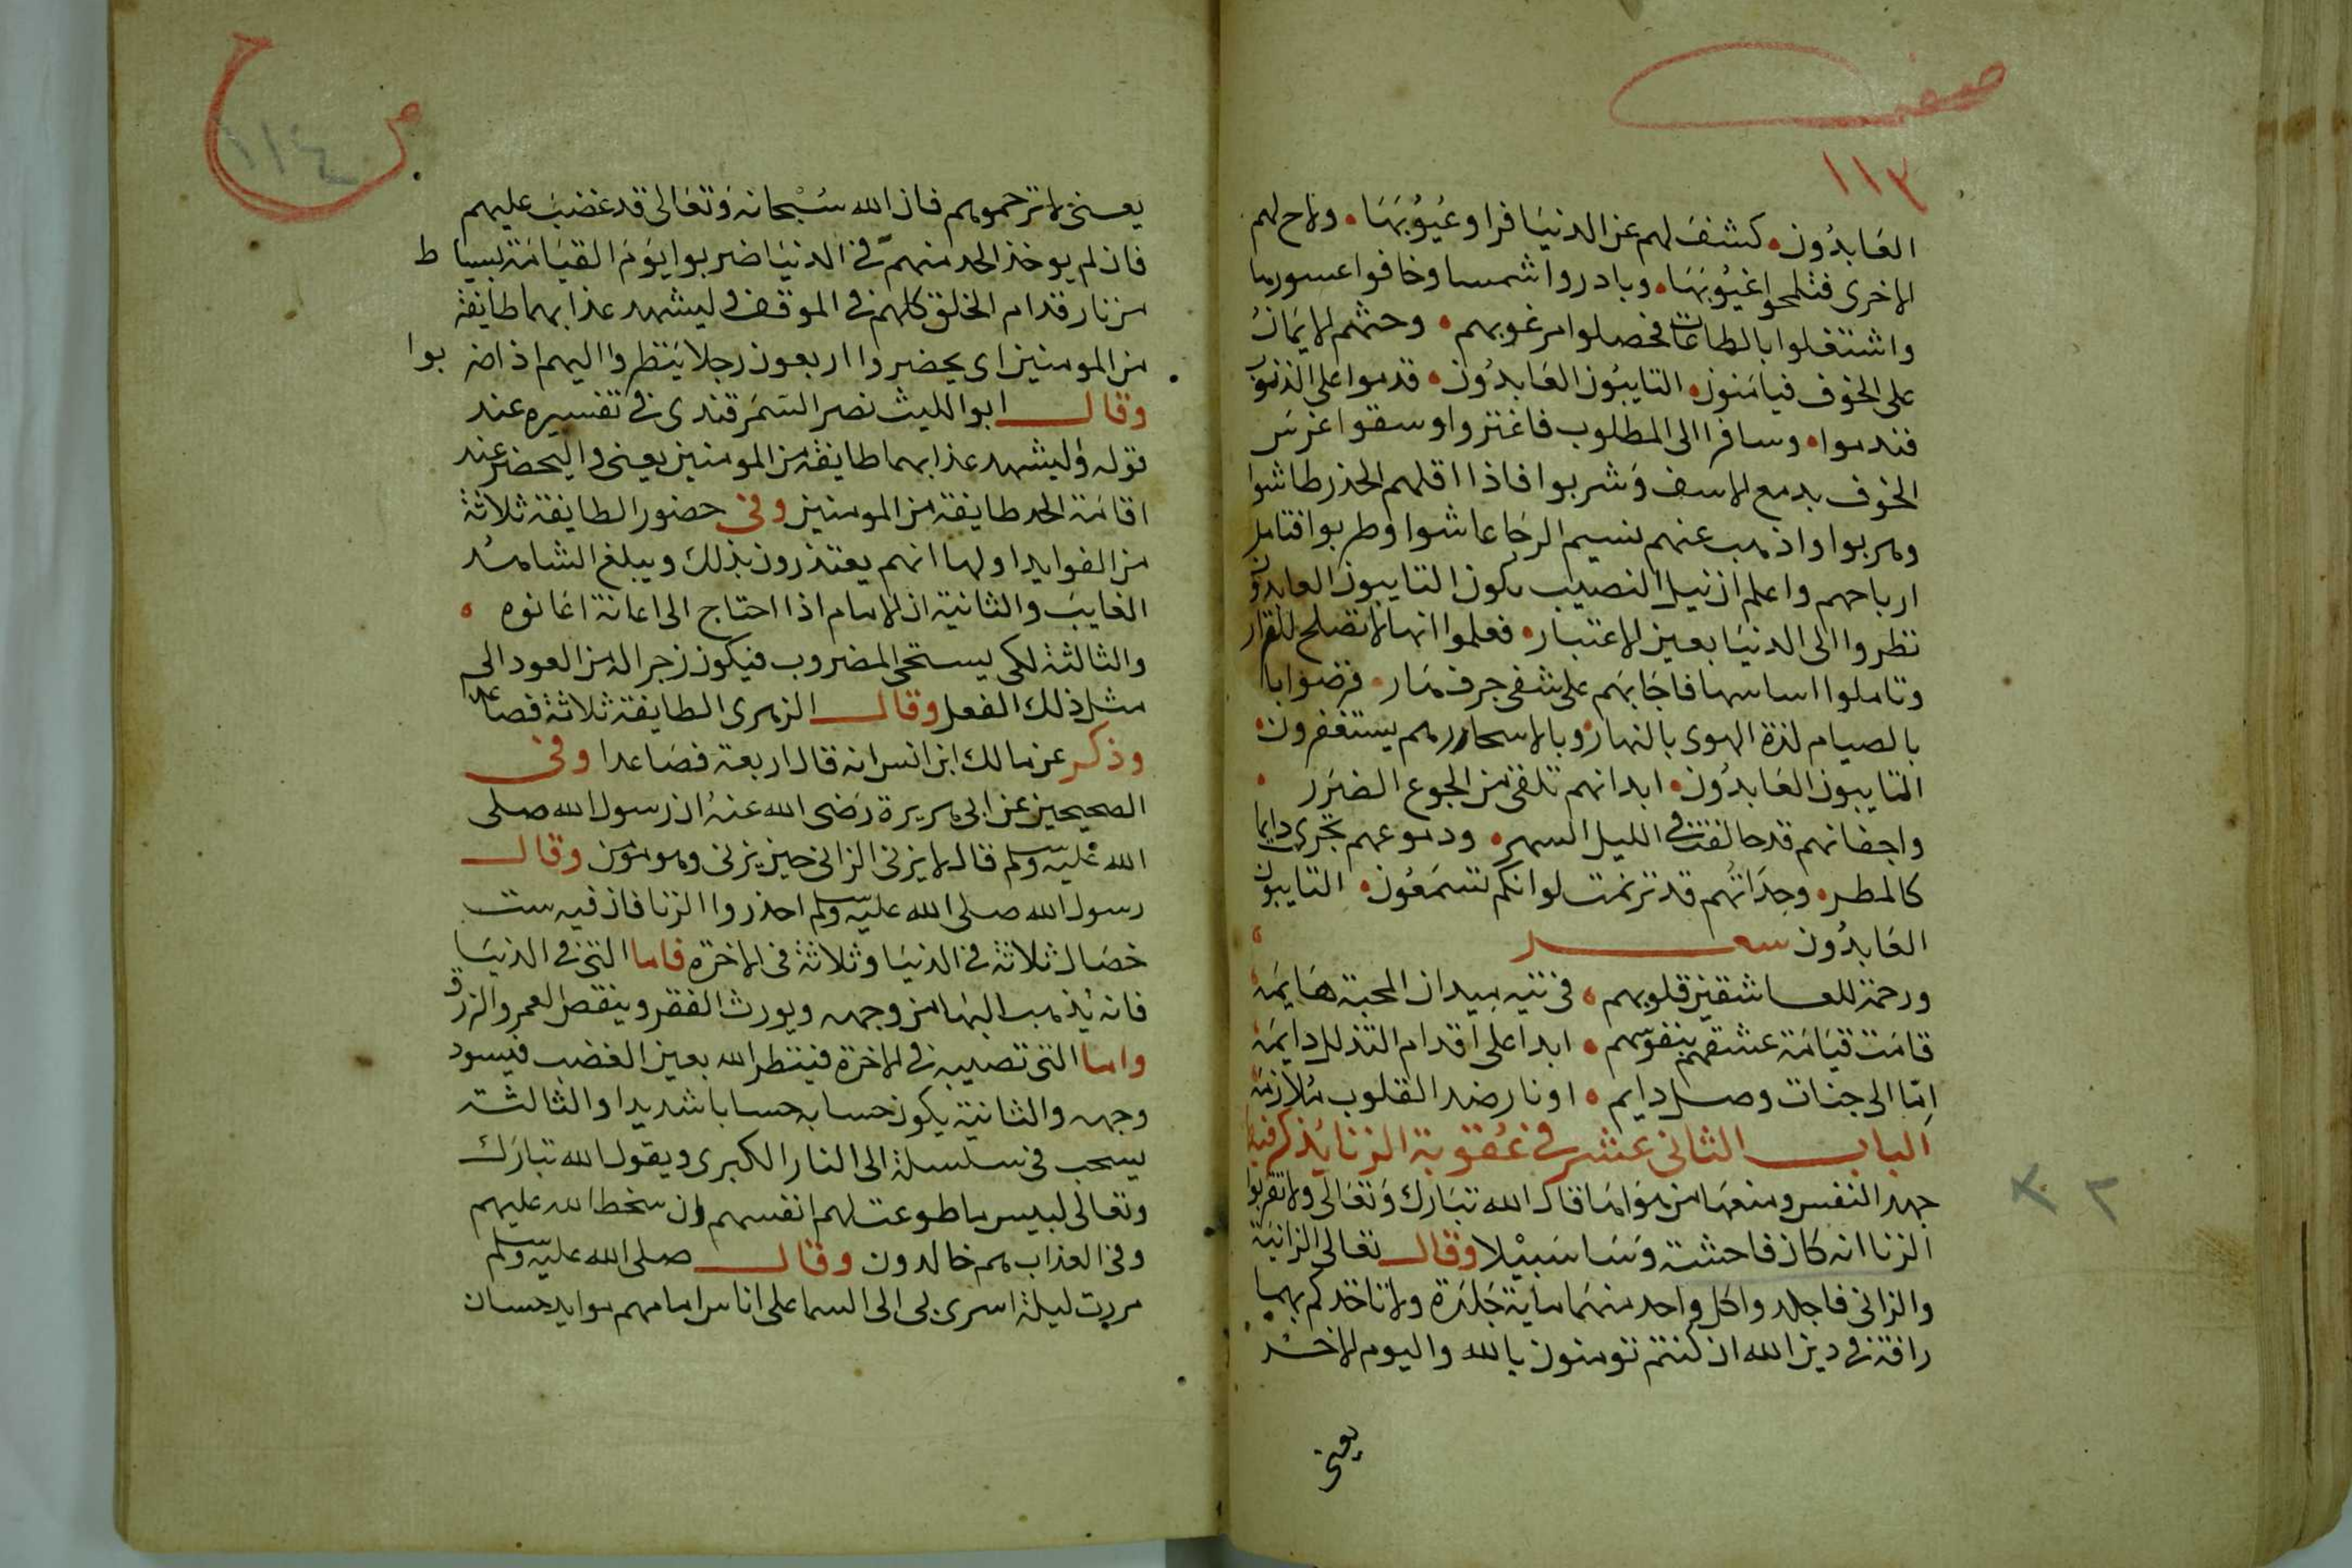 صفحـ
١١٣
العابدون كشف لهم عن الدنيا فراو عيوبها ولاح لهم
الاخرى فتلمحوا غيوبها وبادروا شمسا وخافوا
واشتغلوا بالطاعات فحصلوا مرغوبهم وحثهم الايمان
على الخوف فيامنون التايبون العابدون قدموا على الذنوب
فندموا وسافرا الى المطلوب فاغتروا وسقوا غرس
الخوف بدمع الاسف وشربوا فاذا اقلهم الحذر طاشوا
وهربوا واذ هب عنهم نسيم الرجا عاشوا وطربوا فتامل
ارباحهم واعلم ان نيل النصيب بكون التايبون العابدون
نظروا الى الدنيا بعين الاعتبار فعلموا انها لا تصلح للقرار
وتاملوا اساسها فاجابهم على شفى جرف هار فرضوا با
بالصيام لذة الهوى بالنهار وبالاسحار هم يستغفرون
التايبون العابدون ابدانهم تلقى من الجوع الضرر
واجفانهم قد حالفت فى الليل السهر ودموعهم تجرى دايما
كالمطر وحداتهم قد ترنمت لو انكم تسمعون التايبون
العابدون شعر
ورحمة للعاشقين قلوبهم فى تيه ميدان المحبة هايمة
قامت قيامة عشقهم بنفوسهم ابدا على اقدام التذلل دايمة
اما الى جنات وصل دايم او نار ضد القلوب ملازمة
الباب الثانى عشر فى عقوبة الزنا يذكر فيه
جهد النفس ومنعها من هواها قال الله تبارك وتعالى ولا تقربوا
الزنا انه كان فاحشة وسا سبيلا وقال تعالى الزانية
والزانى فاجلدوا كل واحد منهما ماية جلدة ولا تاخذكم بهما
رافة فى دين الله ان كنتم تومنون بالله واليوم الاخر
يعنى
ص ١١٤
يعنى لا ترحموهم فان الله سبحانه وتعالى قد غضب عليهم
فان لم يوخذ الحد منهم فى الدنيا ضربوا يوم القيامة بسياط
من نار قدام الخلق كلهم فى الموقف وليشهد عذابهما طايفة
من المومنين اى يحضروا اربعون رجلا ينظروا اليهم اذا ضربوا
وقال ابو الليث نصر السمرقندى فى تفسيره عند
قوله وليشهد عذابهما طايفة من المومنين يعنى واليحضر عند
اقامة الحد طايفة من المومنين وفى حضور الطايفة ثلاثة
من الفوايد اولها انهم يعتذرون بذلك ويبلغ الشاهد
الغايب والثانية ان الامام اذا احتاج الى اعانة اعانوه
والثالثة لكى يستحى المضروب فيكون زجرا له من العود الى
مثل ذلك الفعل وقال الزهرى الطايفة ثلاثة فصاعدا
وذكر عن مالك ابن انس انه قال اربعة فصاعدا وفى
الصحيحين عن ابى هريرة رضى الله عنه ان رسول الله صلى
الله عليه وسلم قال لا يزنى الزانى حين يزنى وهو مومن وقال
رسول الله صلى الله عليه وسلم احذروا الزنا فان فيه ست
خصال ثلاثة فى الدنيا وثلاثة فى الاخرة فاما التى فى الدنيا
فانه يذهب البها من وجهه ويورث الفقر وينقص العمر والرزق
واما التى تصيبه فى الاخرة فينظر الله بعين الغضب فيسود
وجهه والثانية يكون حسابه حسابا شديدا والثالثة
يسحب فى سلسلة الى النار الكبرى ويقول الله تبارك
وتعالى لبيس ما طوعت لهم انفسهم ان سخط الله عليهم
وفى العذاب هم خالدون وقال صلى الله عليه وسلم
مررت ليلة اسرى بى الى السما على اناس امامهم موايد حسان